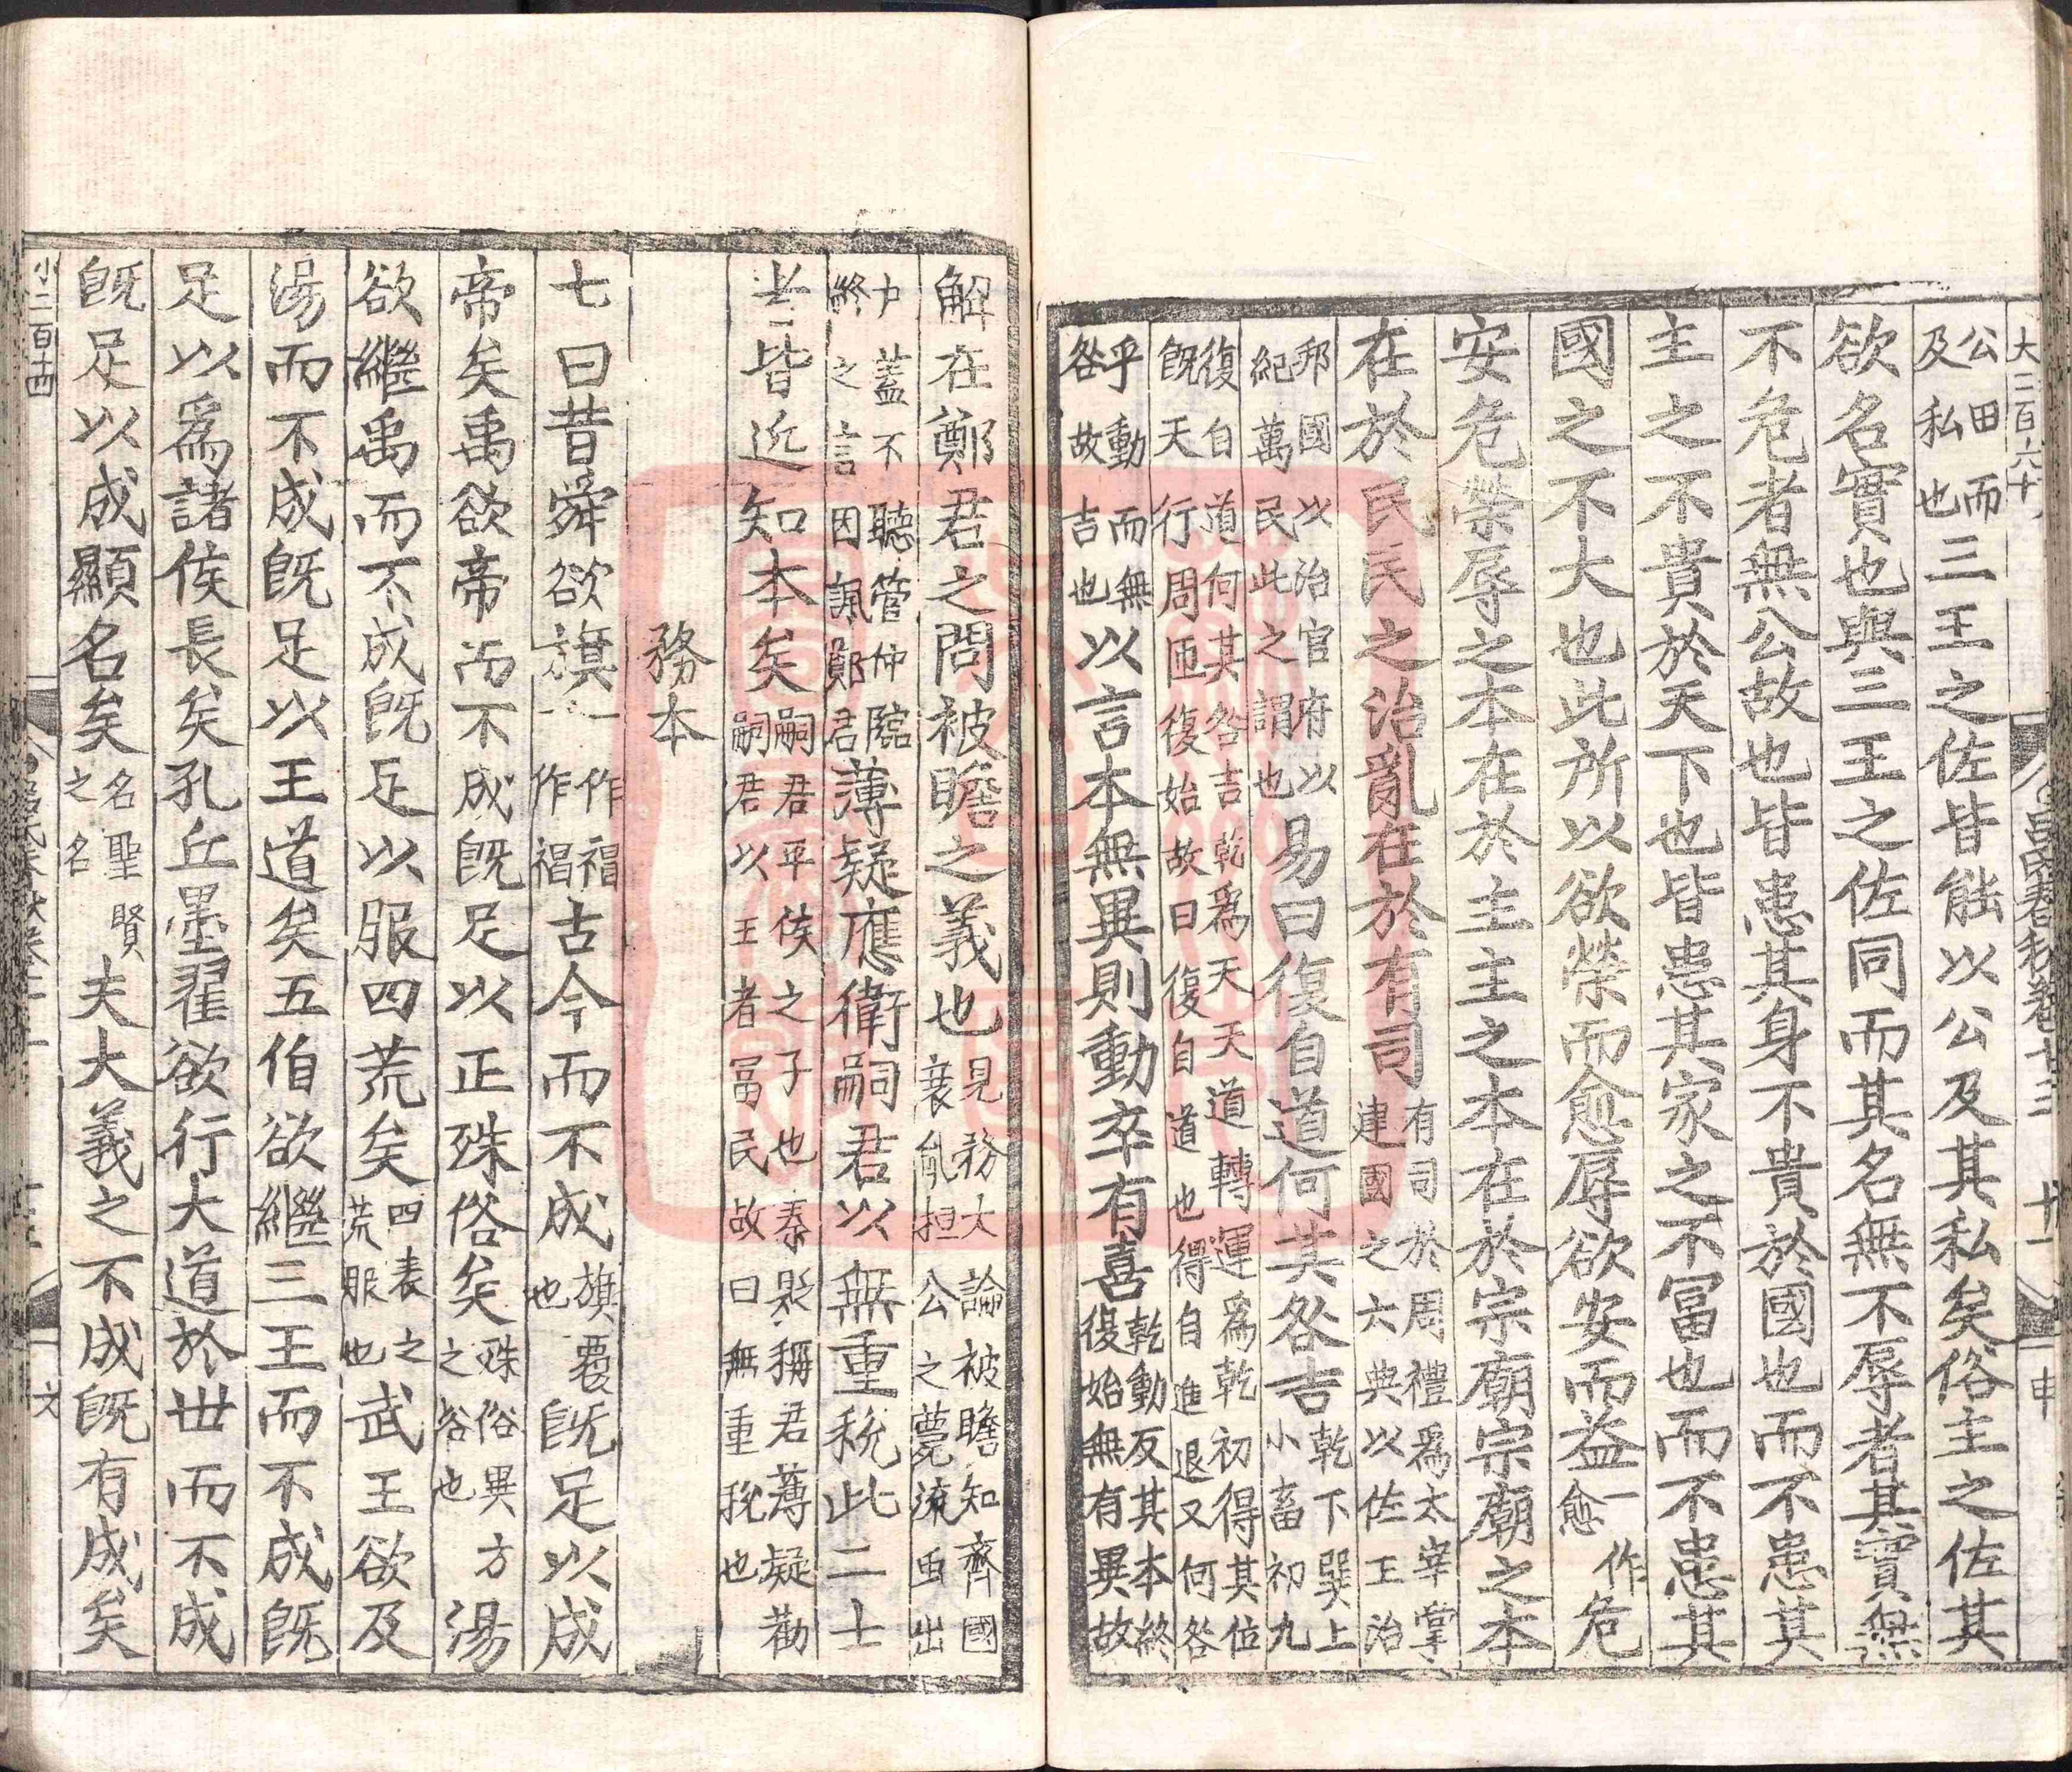 大二百六十
公田而
及私也
三王之佐皆能以公及其私矣俗主之佐其
欲名實也與三王之佐同而其名無不辱者其實無
不危者無公故也皆患其身不貴於國也而不患其
主之不貴於天下也皆患其家之不冨也而不患其
國之不大也此所以欲榮而愈辱欲安而益
一作
愈
危
安危榮辱之本在於主主之本在於宗廟宗廟之本
在於民民之治亂在於有司
有司於周禮爲太宰掌
建國之六典以佐王治
邦國以治官府以
紀萬民此之謂也
易曰復自道何其咎吉
乾下巽上
小畜初九
復自道何其咎吉乾爲天天道轉運爲乾初得其位
旣天行周匝復始故曰復自道也得自進退又何咎
乎動而無
咎故吉也
以言本無異則動卒有喜
乾動反其本終
復始無有異故
吕氏春秋卷十三
十一
申
解在鄭君之問被瞻之義也
見務大論被瞻知齊國
衰亂担公之薨流虫出
户蓋不聽管仲臨
終之言因諷鄭君
薄疑應衛嗣君以無重稅此二士
者皆近知本矣
嗣君平侯之子也秦貶稱君薄疑勸
嗣君以王者冨民故曰無重稅也
務本
七曰昔舜欲旗
一作作福
一作福
古今而不成
旗覆
也
旣足以成
帝矣禹欲帝而不成旣足以正殊俗矣
殊俗異方
之俗也
湯
欲繼禹而不成旣足以服四荒矣
四表之
荒服也
武王欲及
湯而不成旣足以王道矣五伯欲繼三王而不成旣
足以爲諸侯長矣孔丘墨翟欲行大道於世而不成
旣足以成顯名矣
名聖賢
之名
夫大義之不成旣有成矣
小二百十四
文